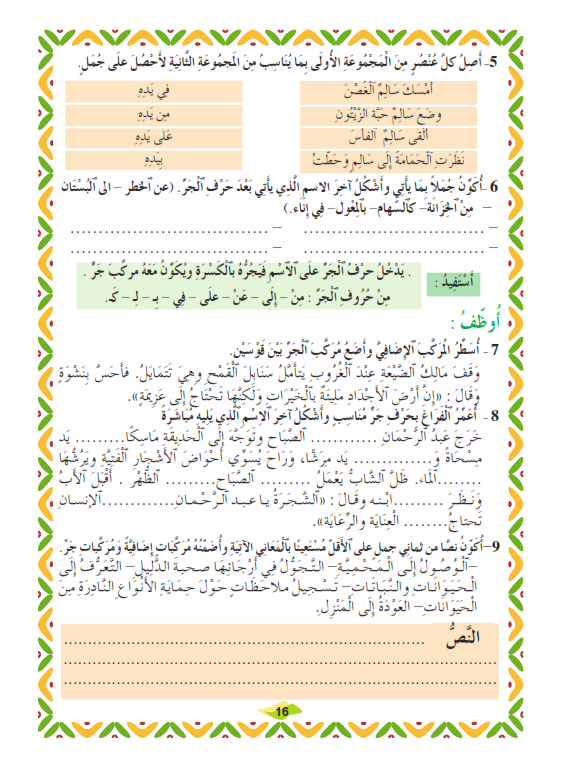 5- أَصِلُ كلَّ عُنْصُرٍ مِنَ الْمَجْمُوعَةِ الأُولَى بِمَا يُنَاسِبُ مِنَ المَجمُوعَةِ الثَّانِيَةِ لأَحْصُلَ علَى جُمَلٍ.
أَمْسَكَ سَالِمٌ ٱلْغُصْنَ
في يَدِهِ
وضَعَ سَالِمٌ حَبَّةَ الزَّيْتُونِ
مِن يَدِهِ
أَلْقَى سَالِمٌ ٱلْفأسَ
عَلَى يَدِهِ
نَظَرَتِ ٱلْحَمَامَةُ إِلَى سَالِمٍ وَحَطَّتْ
بِيَدِهِ
6 -أُكَوِّنُ جُمَلاً بِمَا يَأتِي وأَشْكُلُ آخِرَ الاسمِ الَّذِي يَأتِي بَعْدَ حَرْفِ ٱلْجَرِّ. (عن الخطر – الى البُسْتَان
– مِنْ الخِزَانَة– كَالسِّهام– بِالمِعْول– فِي إِنَاء.)
– ............................... – ...............................
– ............................... – ...............................
أَسْتَفِيدُ :
. يَدْخُلُ حَرْفُ ٱلْجَرِّ علَى ٱلاِسْمِ فَيَجُرُّهُ بِالْكَسْرَةِ ويُكَوِّنُ مَعَهُ مركَّبَ جَرٍّ .
مِنْ حُرُوفِ ٱلْجَرِّ : مِنْ – إِلَى – عَنْ – علَى – فِي – بِـ – لِـ – كَـ.
أُوظِّفُ :
7 - أُسَطِّرُ المُرَكَّبَ الإِضَافِيَّ وأَضَعُ مُرَكَّبَ الْجَرِّ بَيْنَ قَوْسَيْنِ.
وَقَفَ مَالِكُ الضَّيْعَةِ عِنْدَ الْغُرُوبِ يَتَأَمَّلُ سَنَابِلَ الْقَمْحِ وهِيَ تَتَمَايَلُ. فأَحَسَّ بِنَشْوَةٍ
وَقَالَ : «إِنَّ أَرْضَ الأَجْدَادِ مَلِيئَةٌ بِالْخَيْرَاتِ وَلَكِنَّهَا تَحْتَاجُ إِلَى عَزِيمَةٍ».
8 - أُعَمِّرُ الْفَرَاغَ بِحَرْفِ جَرٍّ مُنَاسِبٍ وأَشْكُلُ آخِرَ الاِسْمِ الَّذِي يَلِيهِ مُبَاشَرَةً
خَرَجَ عَبدُ الرَّحْمَانِ ............ الصَّبَاحِ وتَوَجَّهَ إِلَى ٱلْحَدِيقَةِ مَاسِكًا......... يَد
مِسْحَاةً وَ............ يَد مِرَشًّا، وَرَاحَ يُسَوِّي أَحْوَاضَ الأَشْجَارِ الْفَتِيَّةِ وَيَرُشُّهَا
........ٱلْمَاء. ظَلَّ الشَّابُّ يَعْمَلُ ......... الصَّبَاح......... الظُّهْر . أَقْبَلَ الأَبُ
وَنَظَرَ ..........ابْنه وقَالَ : «الشَّجَرَةُ يا عبد الرَّحْمَانِ.............الإنسان
تَحتاجُ........ الْعِنَايَة والرِّعَايَة».
9–أُكَوِّنُ نصًّا من ثماني جملٍ على الأقلّ مُسْتَعِينًا بالْمَعَانِي الآتِيَةِ وأُضَمِّنُهُ مُرَكَّبَاتٍ إضافِيَّةً وَمُرَكَّباتِ جَرّ.
–الْوُصُولُ إِلَى الْمَحْمِيَّةِ– التَّجَوُّلُ فِي أَرْجَائِهَا صحبةَ الدَّلِيلِ– التَّعَرُّفُ إِلَى
الْحَيَوَانَاتِ والنَّبَاتَاتِ– تَسْجِيلُ ملاحَظَاتٍ حَوْلَ حِمَايَةِ الأَنْوَاعِ النَّادِرَةِ مِنَ
الْحَيَوَانَاتِ– العَوْدَةُ إِلَى الْمَنْزِلِ.
النَّصُّ
16